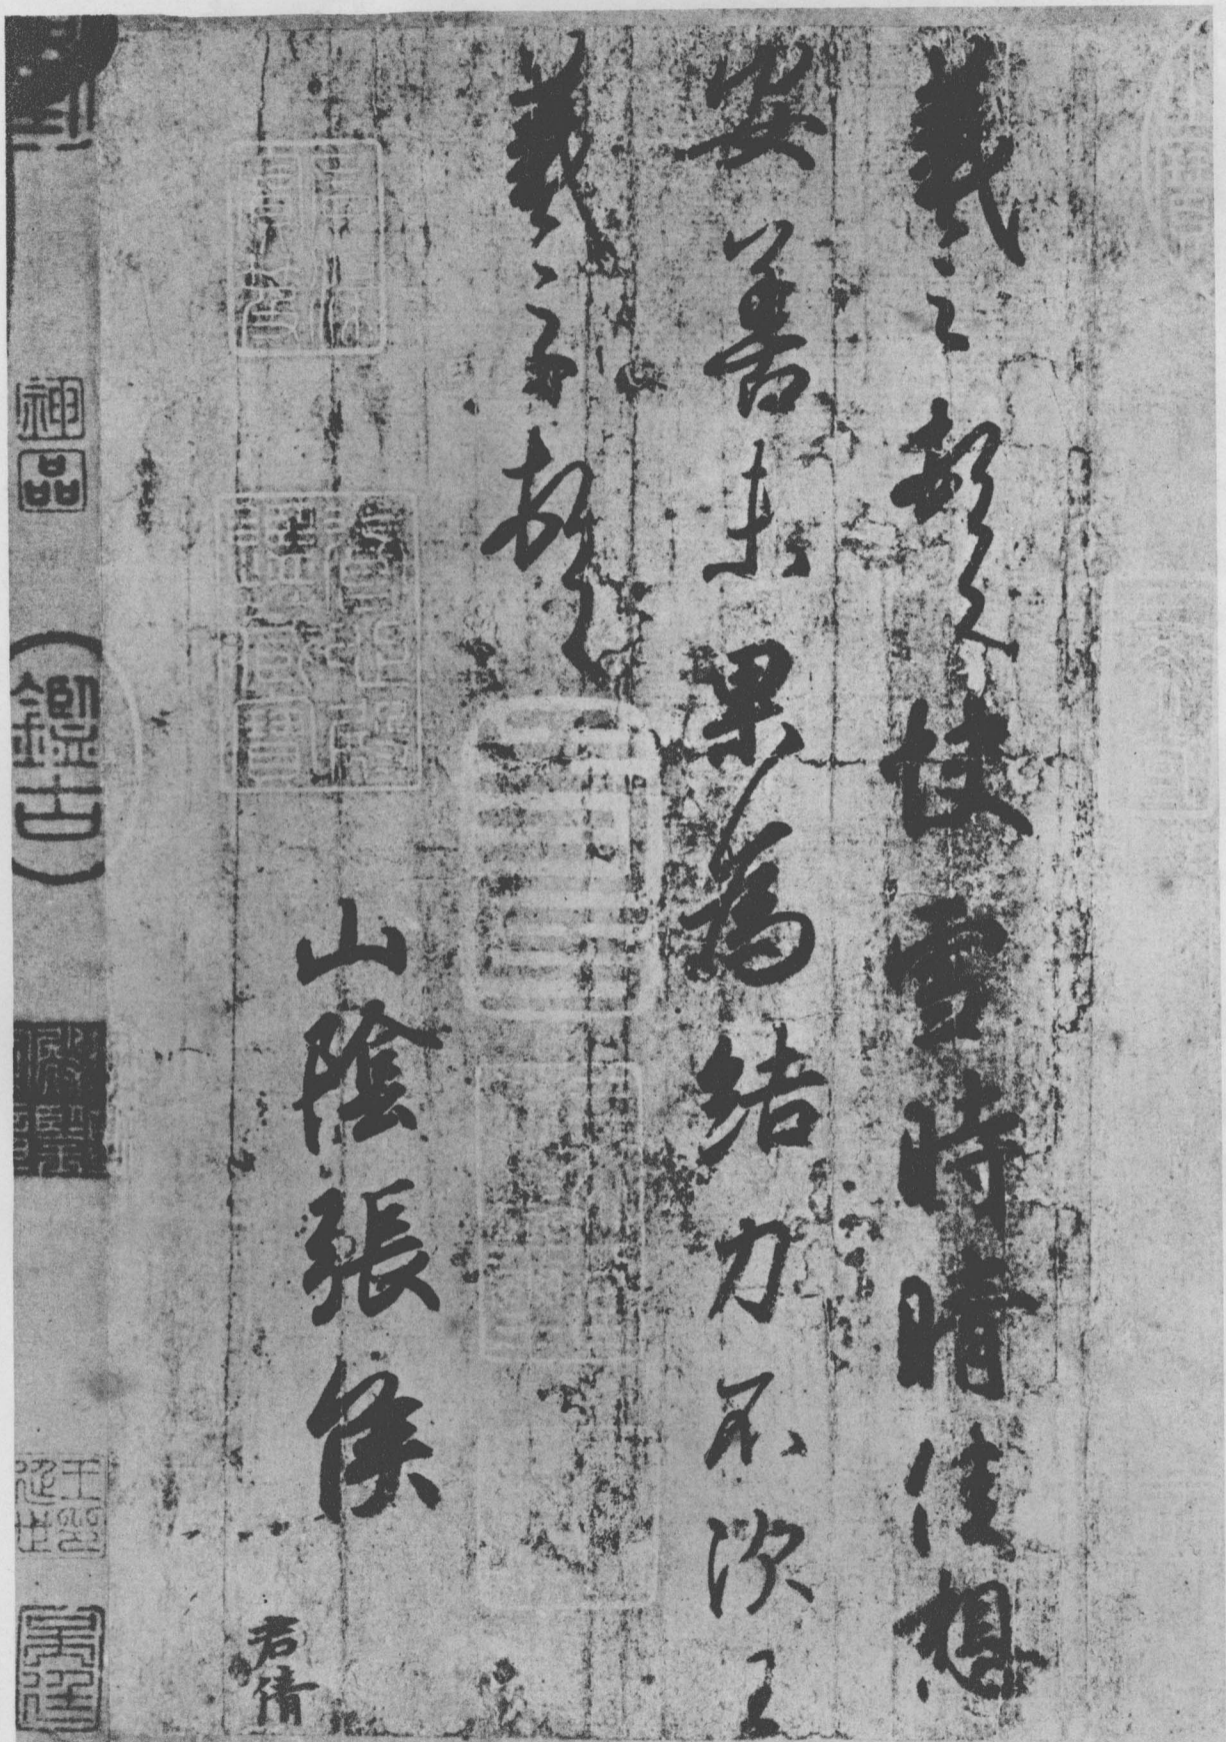 羲之頓首快雪時晴佳想
安善未果為結力不次王
羲之頓首
山陰張侯
君倩
神品
鑑古